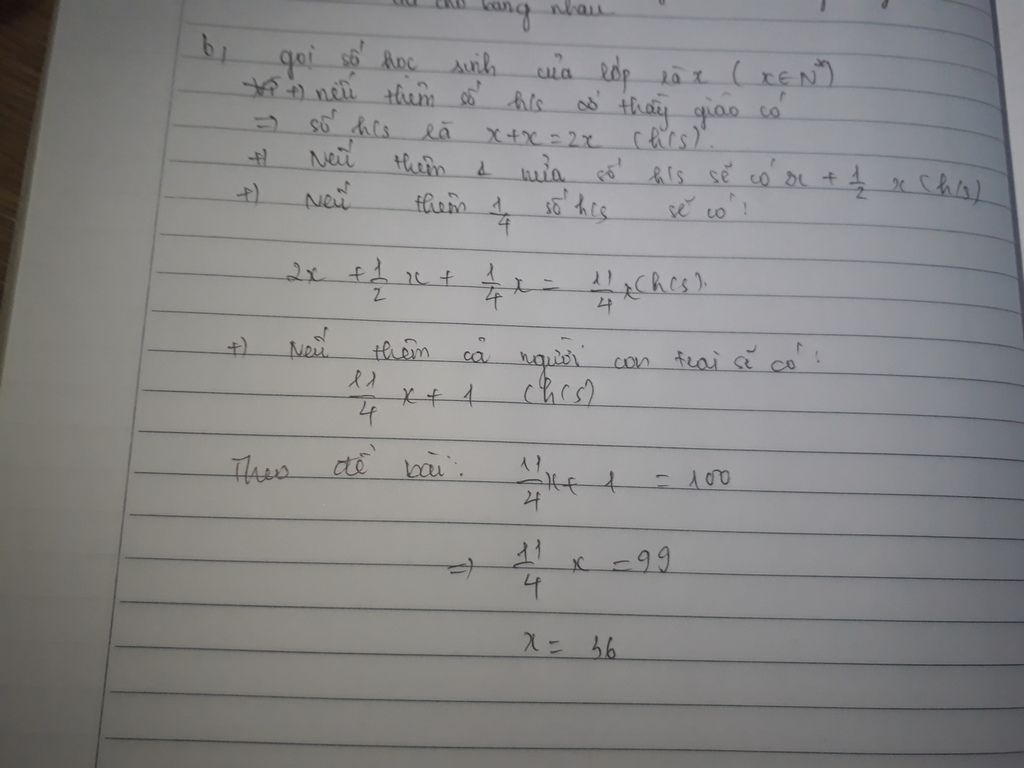 cho bằng nhau
b, gọi số học sinh của lớp là x ( x ∈ N*)
+) nếu thêm số h/s cố thầy giáo có
=> số h/s là x+x=2x (h/s).
+) Nếu thêm 1 nửa số h/s sẽ có 2x + 1/2 x (h/s)
+) Nếu thêm 1/4 số h/s sẽ có :
2x + 1/2 x + 1/4 x = 11/4 x (h/s).
+) Nếu thêm cả người con trai sẽ có :
11/4 x + 1 (h/s)
Theo đề bài : 11/4 x + 1 = 100
=> 11/4 x = 99
x = 36